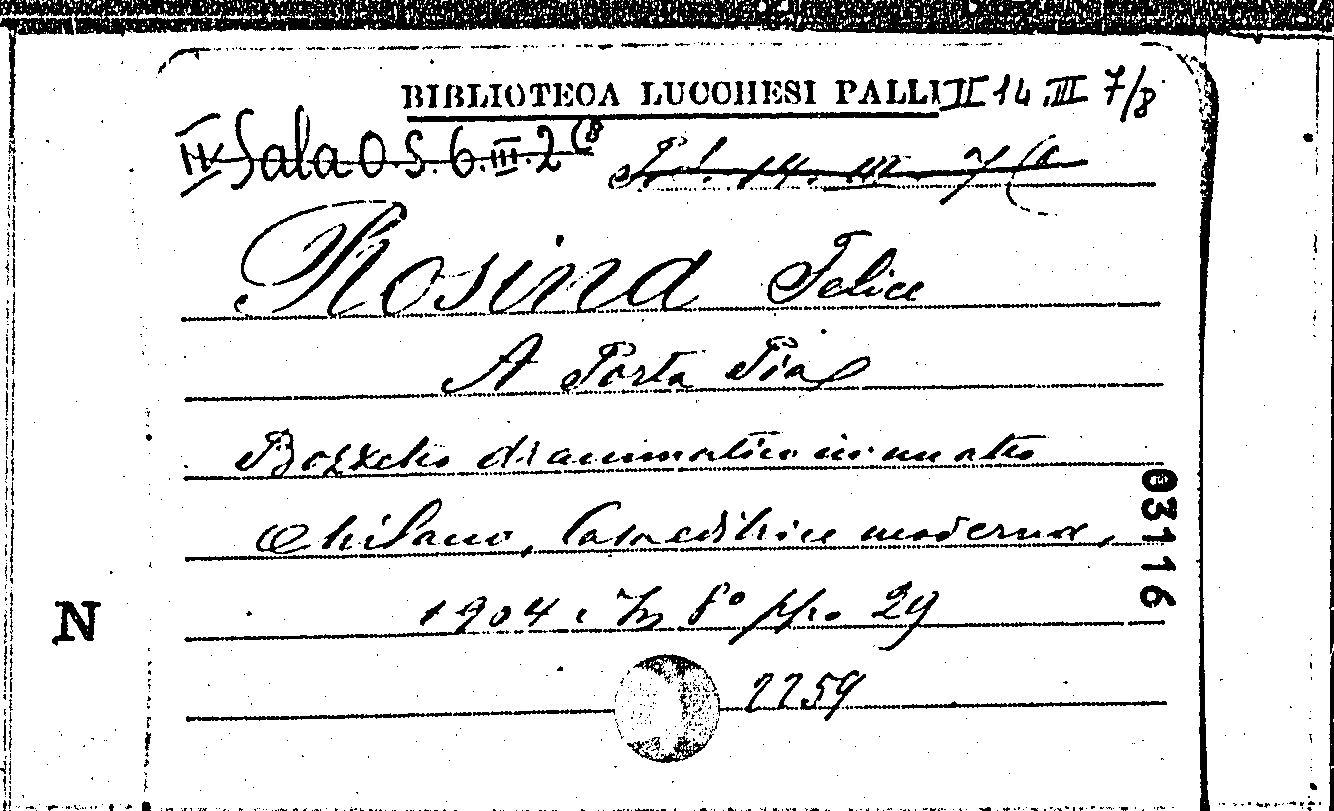 BIBLIOTECA LUCCHESI PALLI II 14 III 7/8
IV Sala O S. 6. III. 2 (8 14. III. 7 (6
Rosina Felice
A Porta Pia
Bozzetto drammatico in un atto
Milano, Casa editrice moderna,
1904. In 8° pp. 29
2259
03116
N